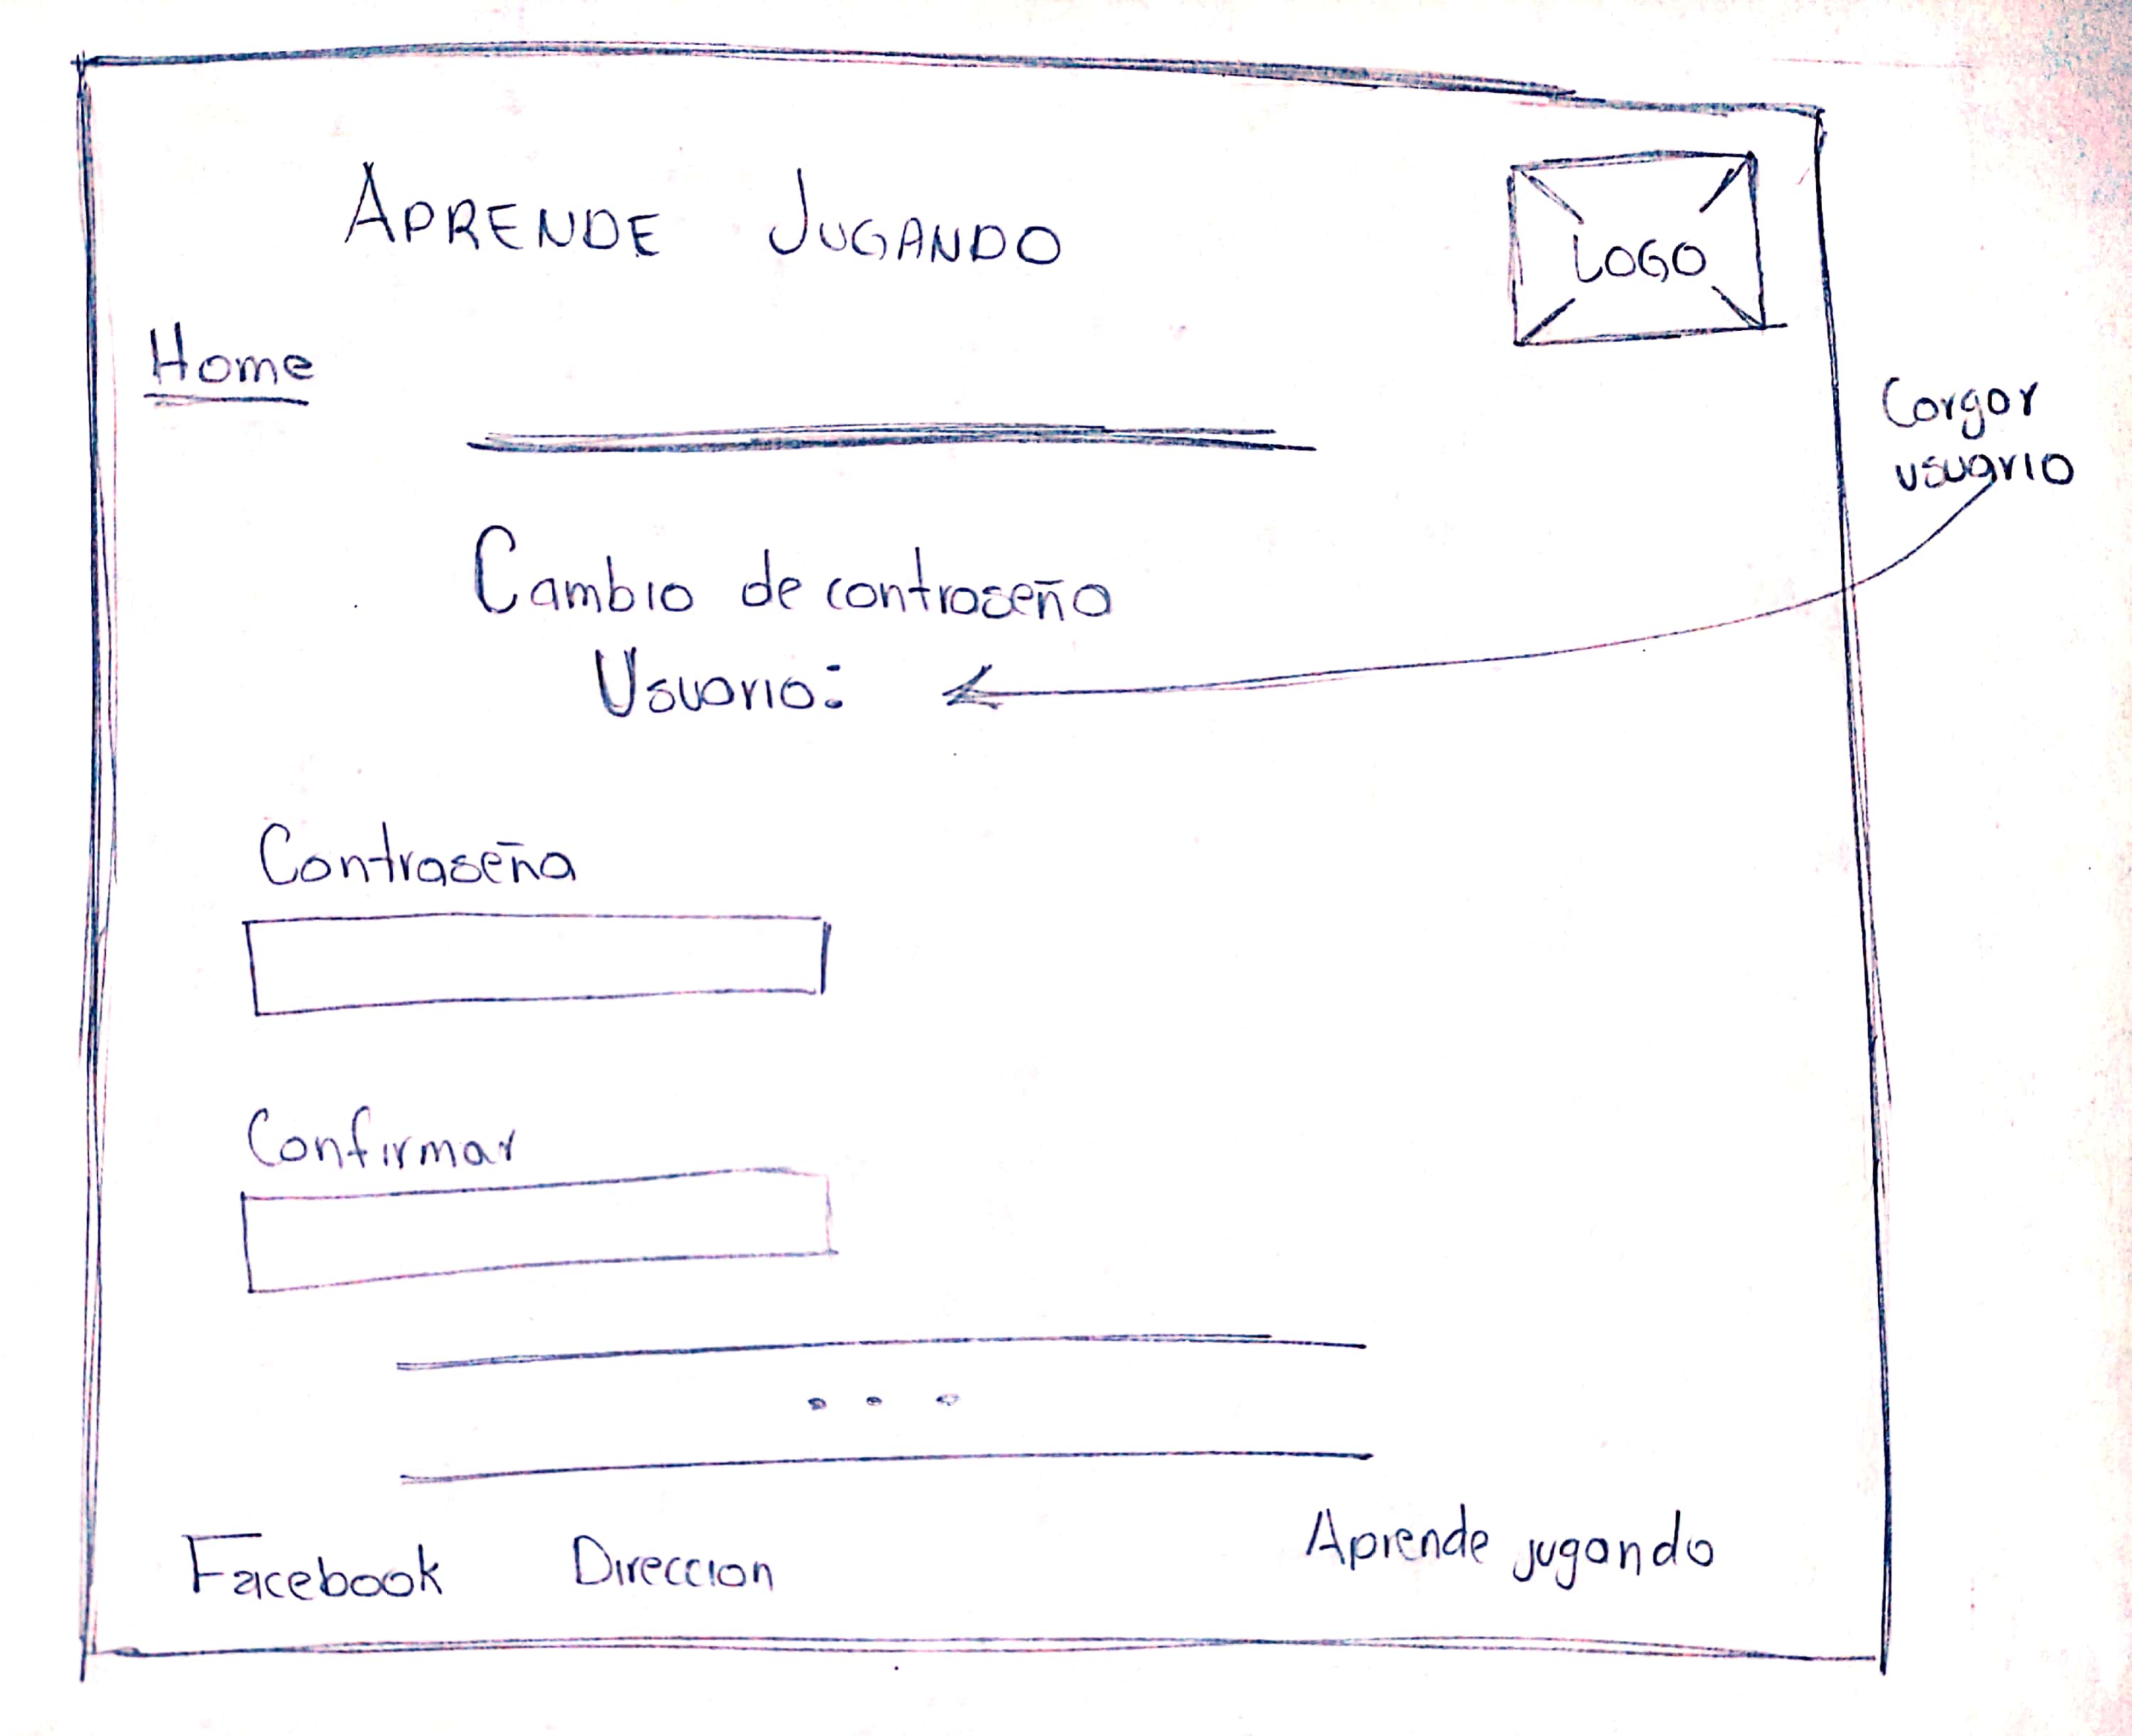 APRENDE JUGANDO
LOGO
Home
Cargar
usuario
Cambio de contraseña
Usuario:
Contraseña
Confirmar
...
Facebook Direccion Aprende jugando